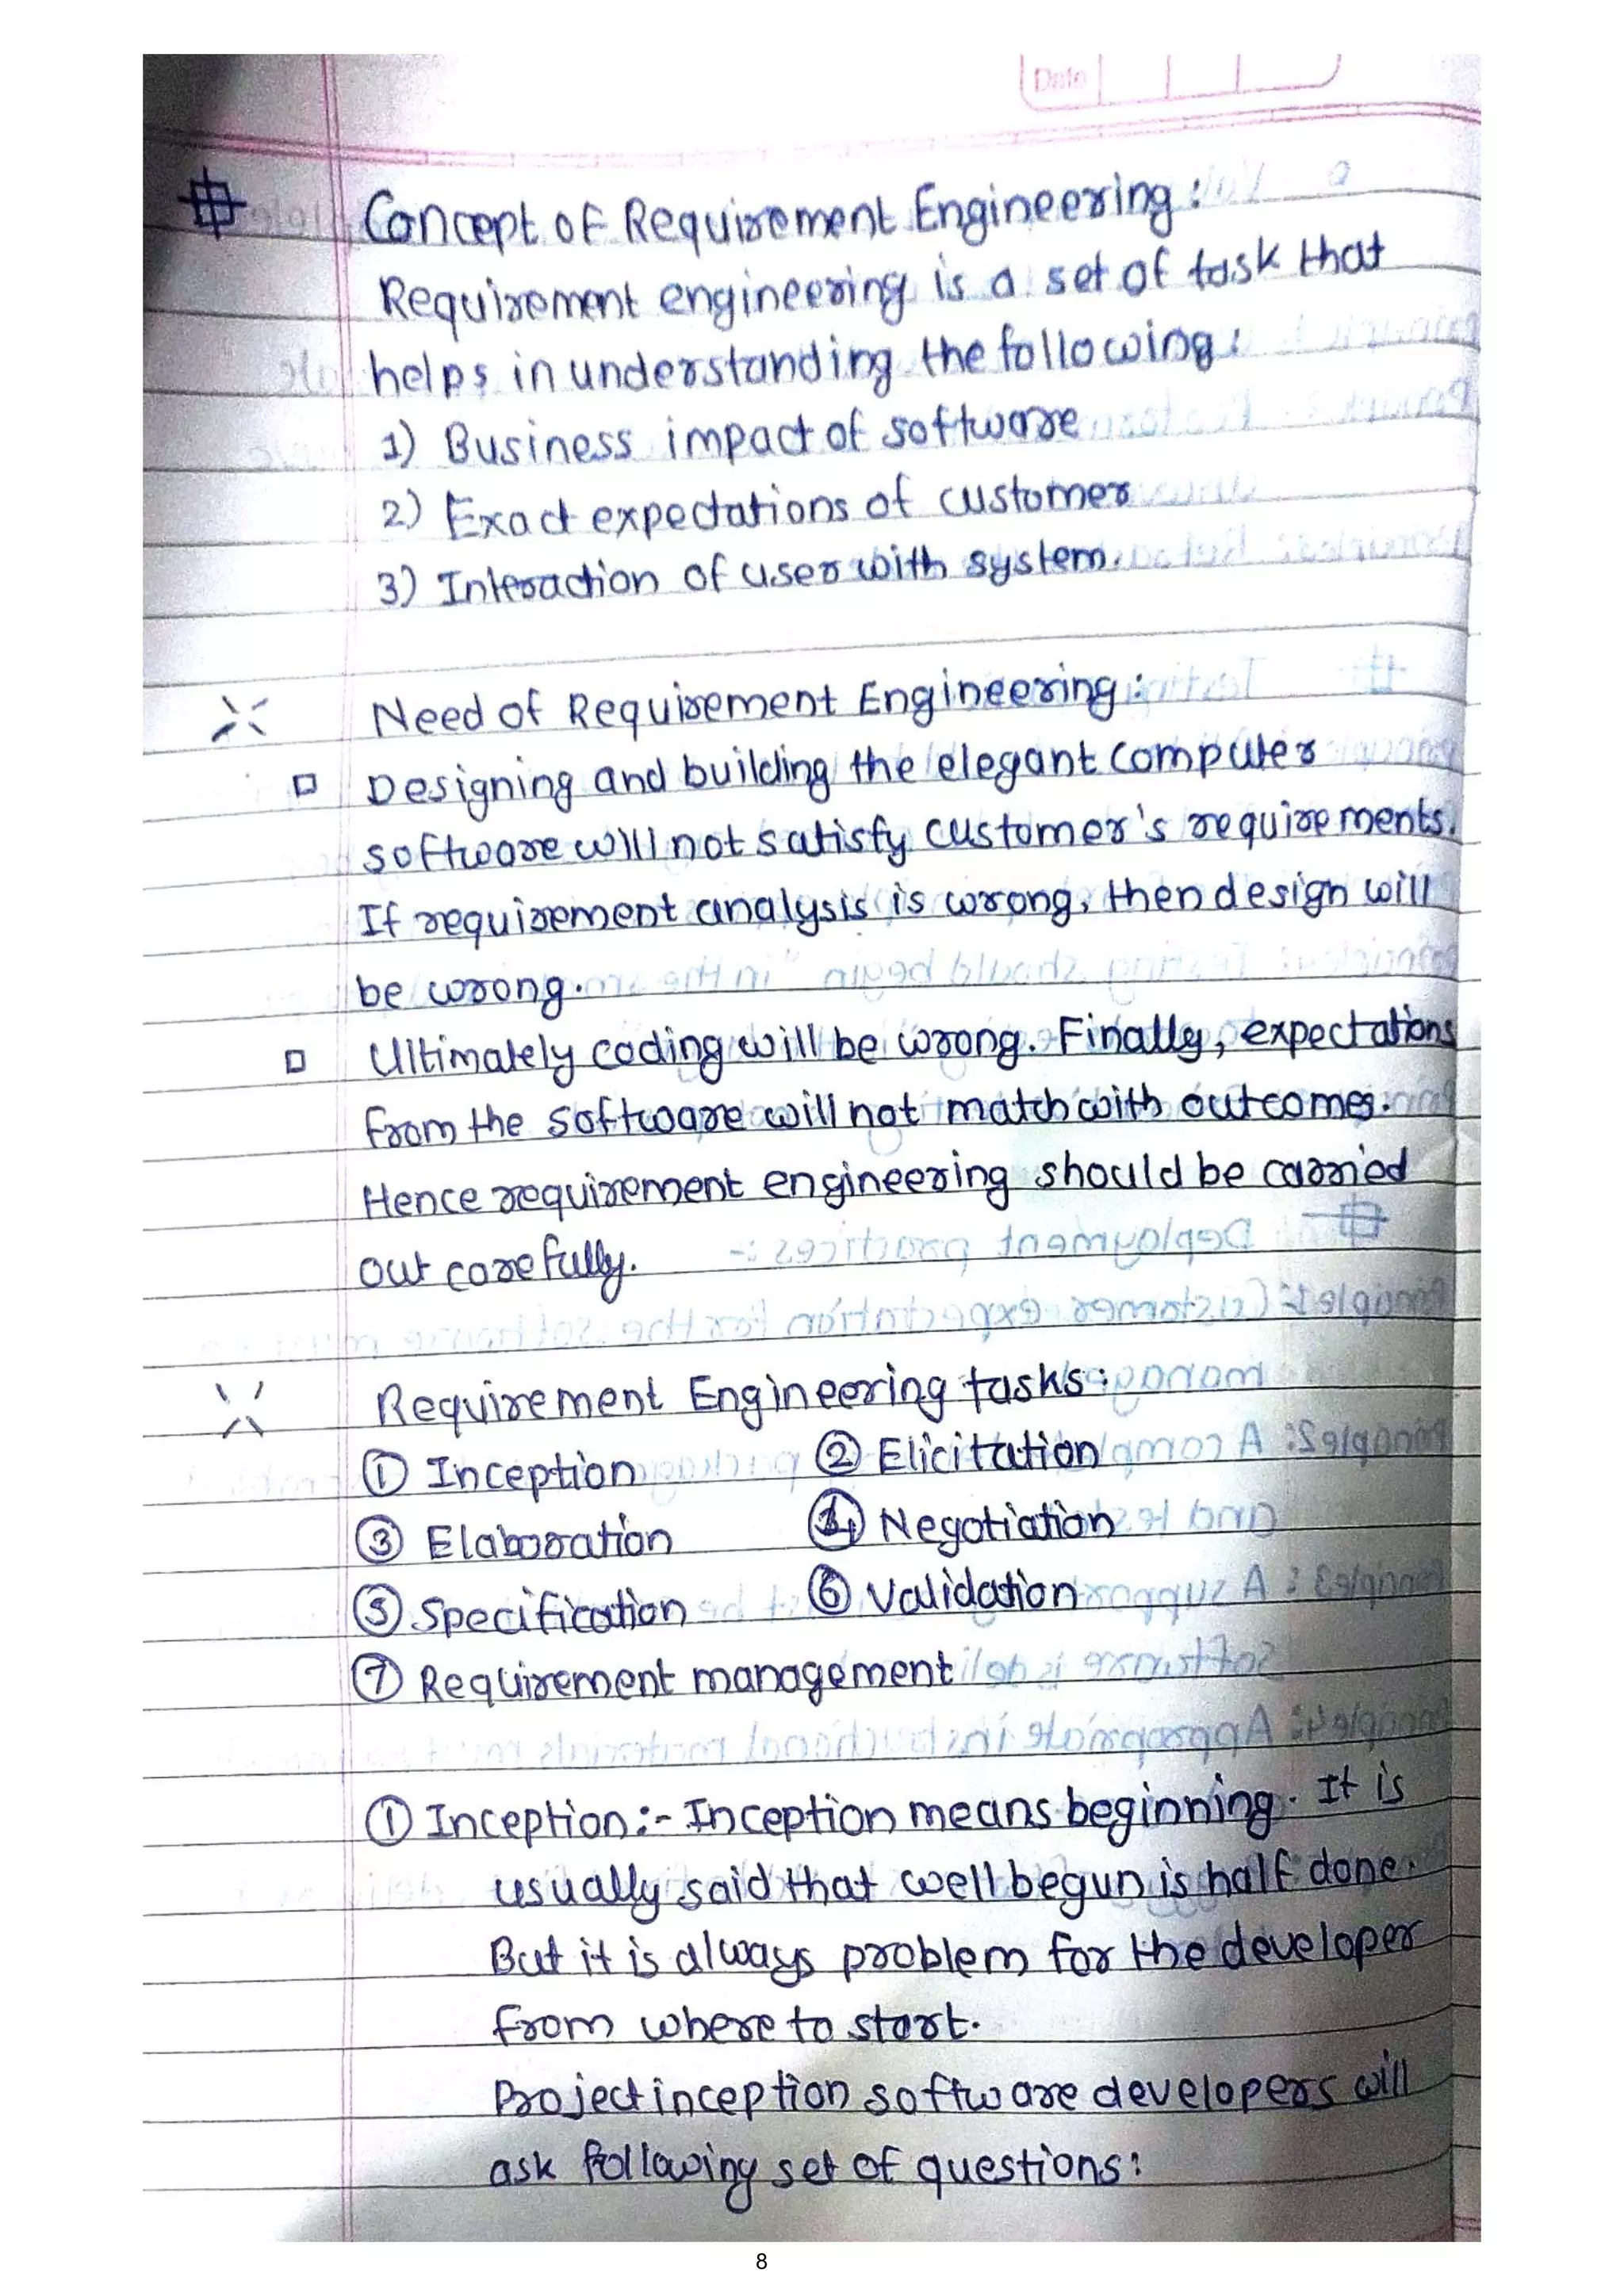 Date
Concept of Requirement Engineering:
Requirement engineering is a set of task that
helps in understanding the following:
1) Business impact of software
2) Exact expectations of customer
3) Interaction of user with system.
Need of Requirement Engineering:
Designing and building the elegant computer
software will not satisfy customer's requirements.
If requirement analysis is wrong, then design will
be wrong.
Ultimately coding will be wrong. Finally, expectations
from the software will not match with outcomes.
Hence requirement engineering should be carried
out carefully.
Requirement Engineering tasks:
① Inception ② Elicitation
③ Elaboration ④ Negotiation
⑤ Specification ⑥ Validation
⑦ Requirement management
① Inception:- Inception means beginning. It is
usually said that well begun is half done.
But it is always problem for the developer
from where to start.
Project inception software developers will
ask following set of questions:
8